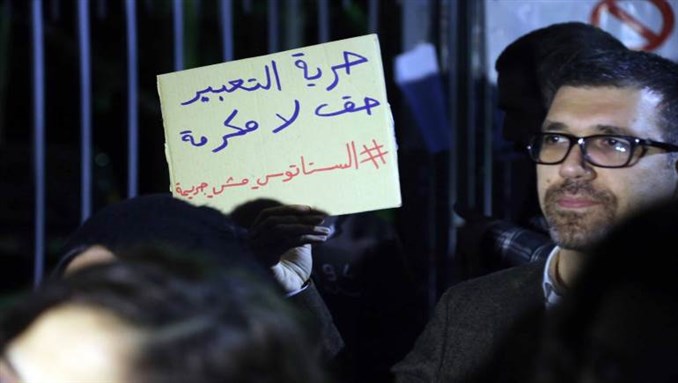 حرية التعبير
حق لا مكرمة
#الستاتوس_مش_جريمة